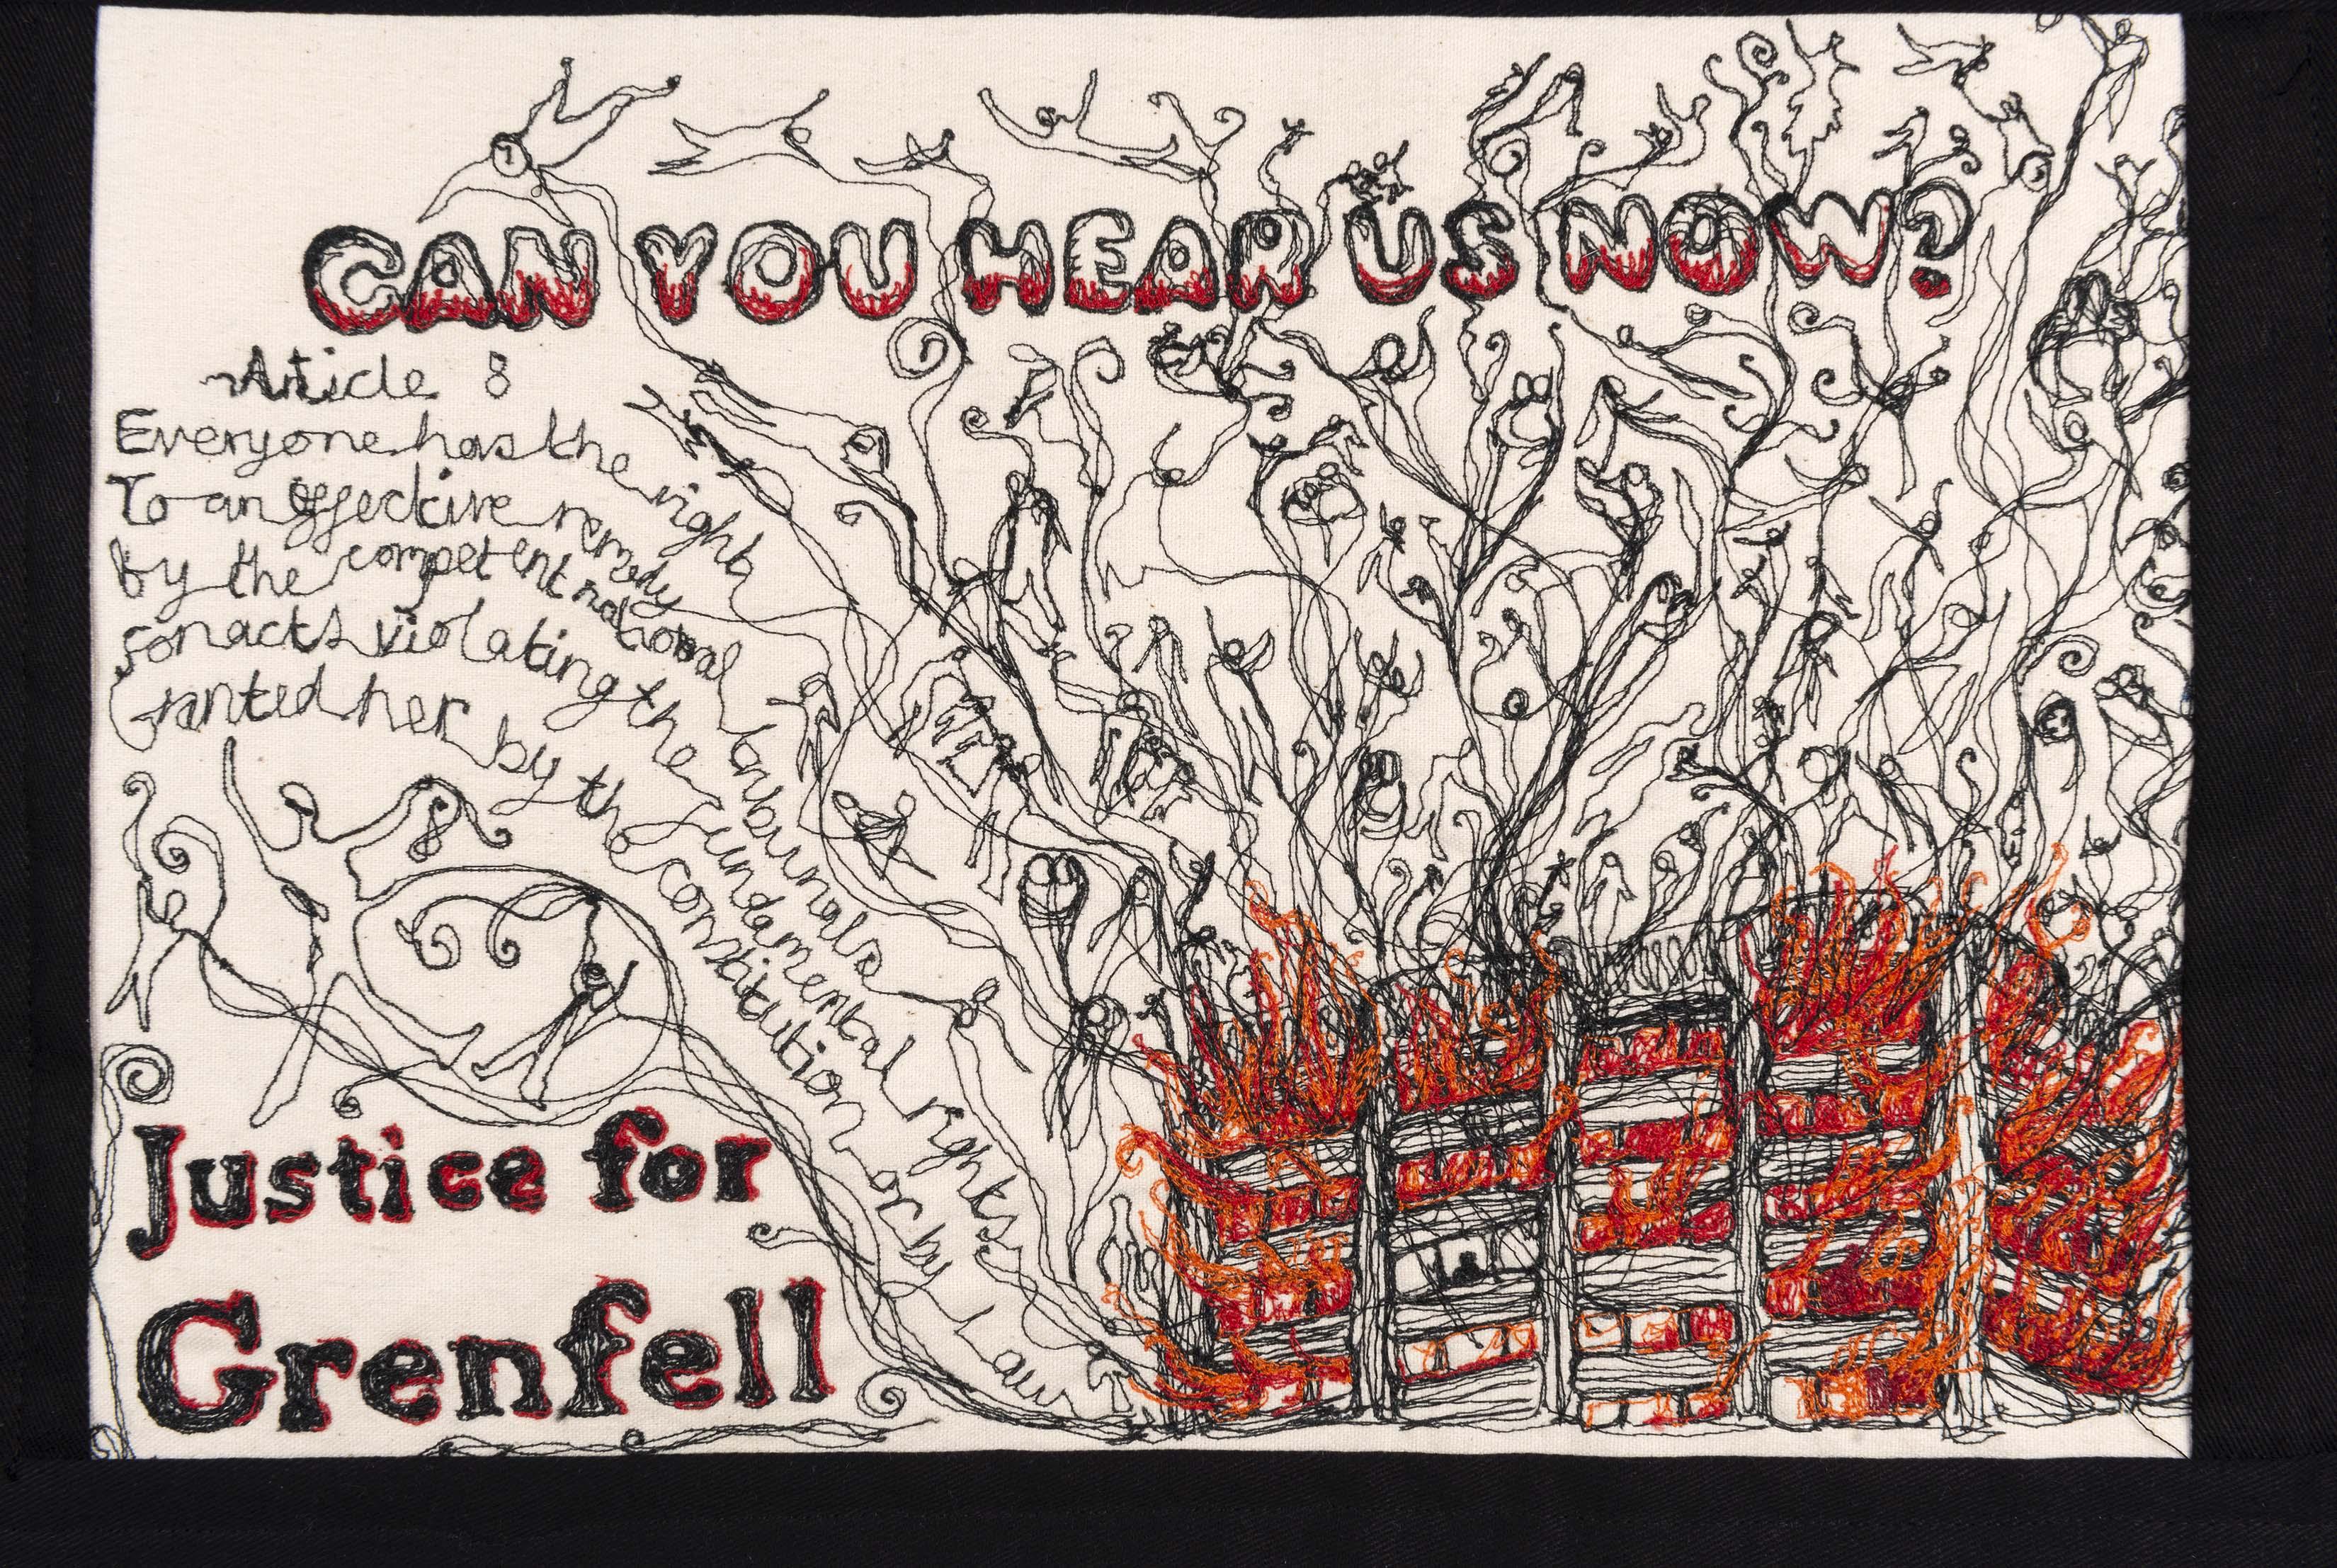 CAN YOU HEAR US NOW?
Article 8
Everyone has the right
To an effective remedy
by the competent national tribunals
for acts violating the fundamental rights
granted her by the constitution or by Law
Justice for
Grenfell